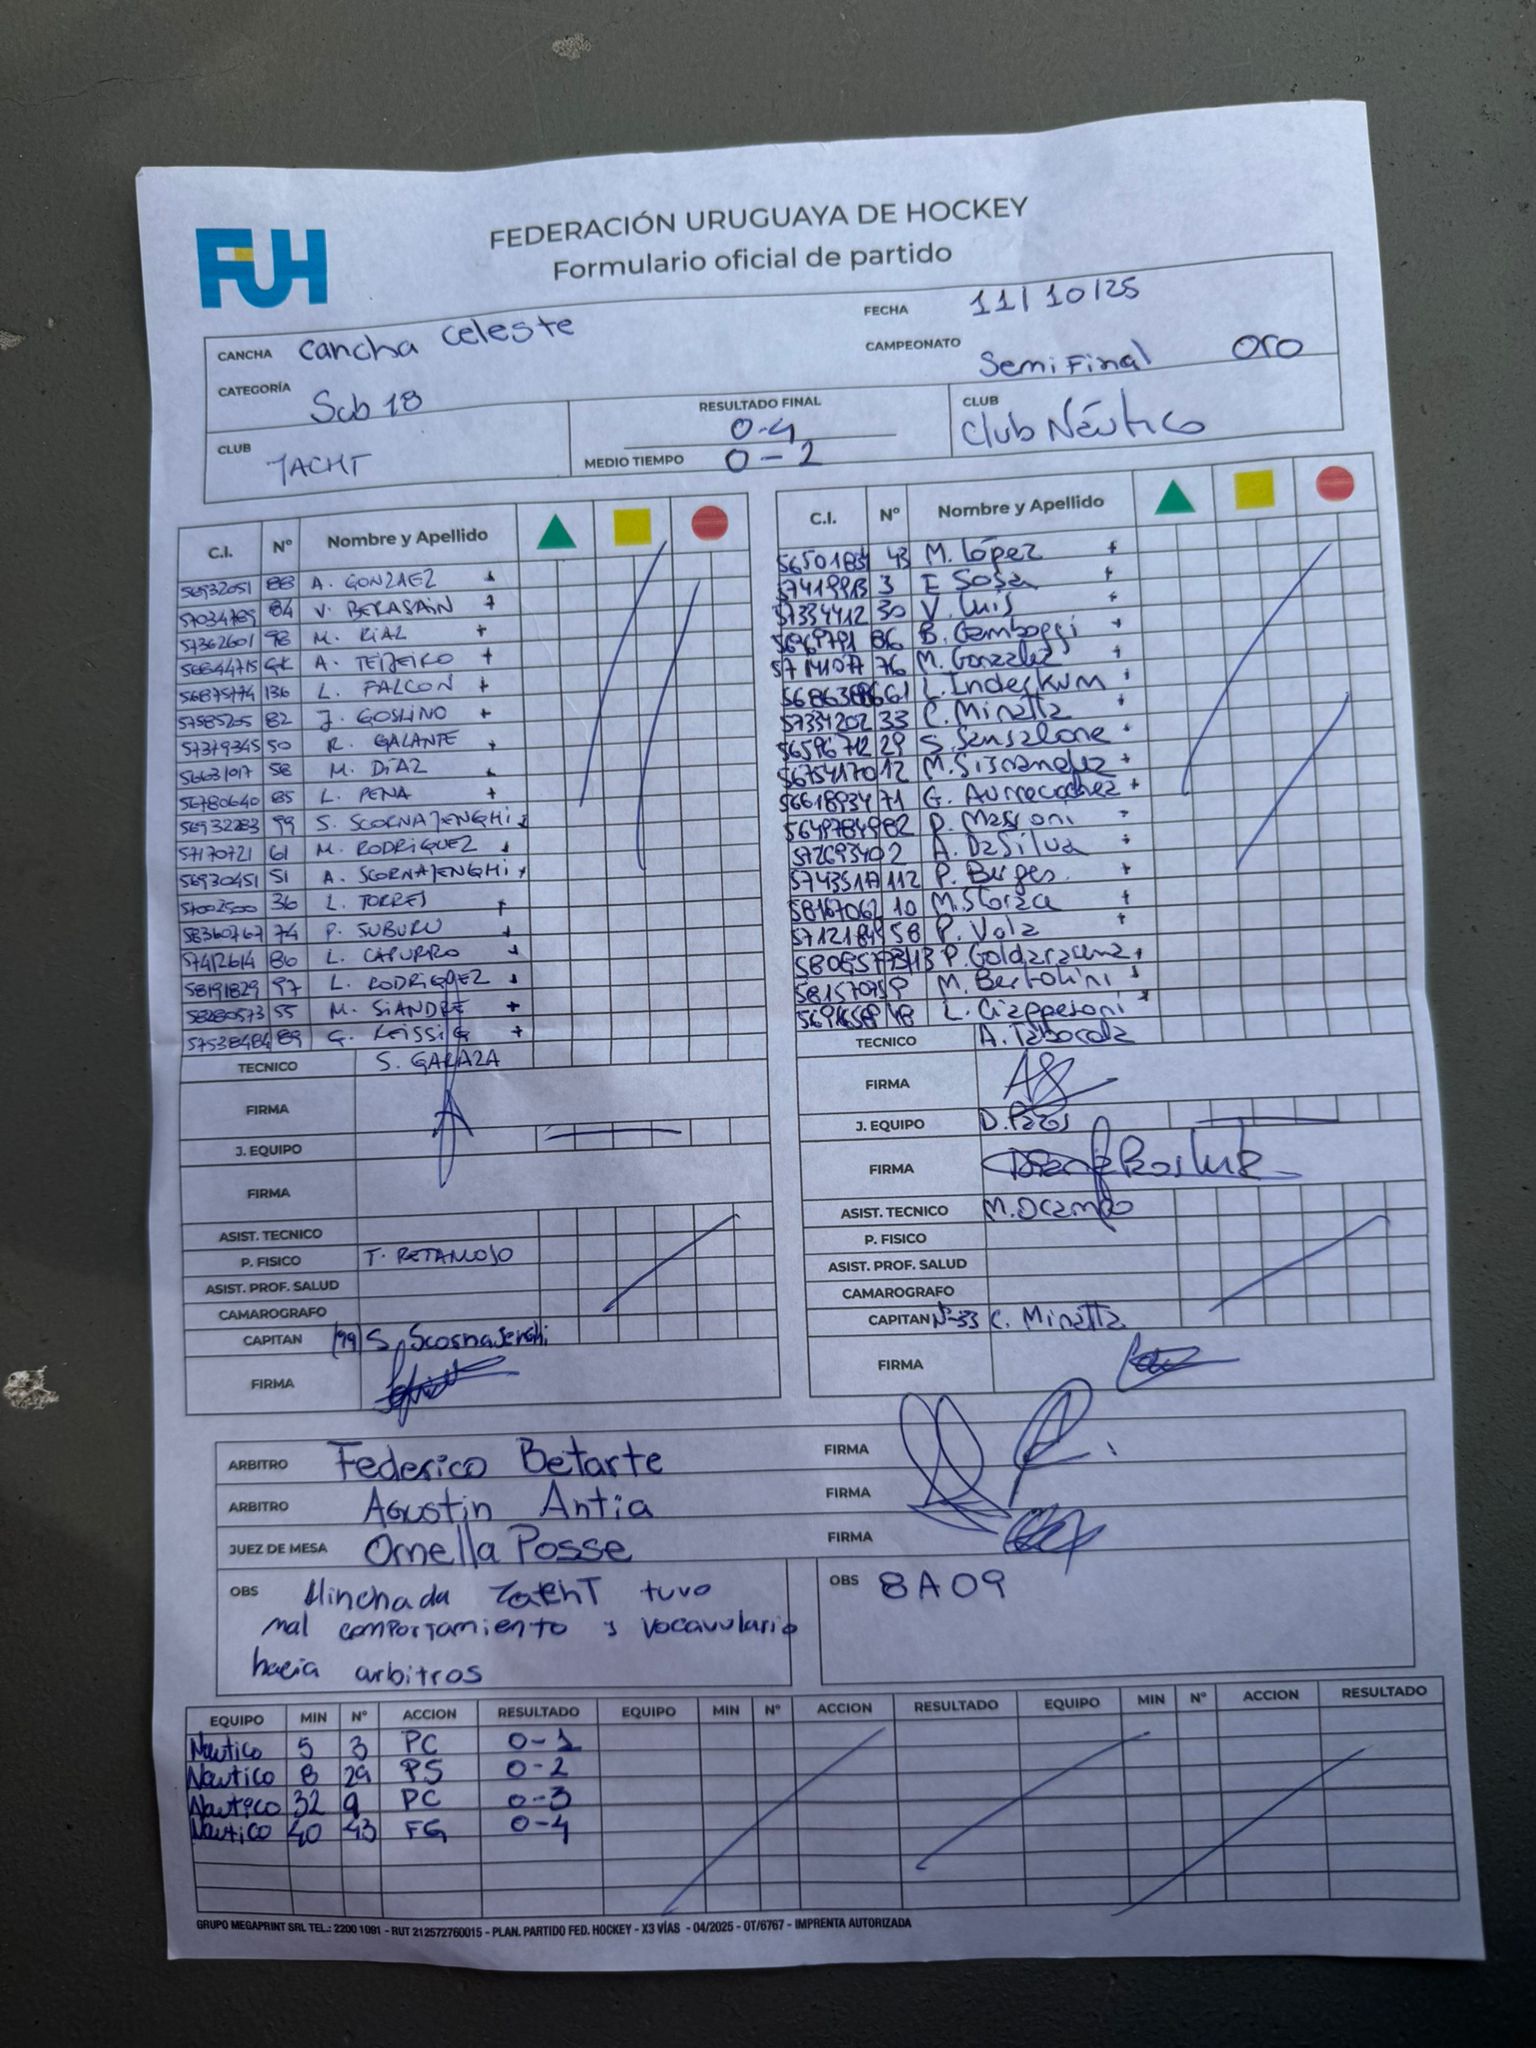 FUH
FEDERACIÓN URUGUAYA DE HOCKEY
Formulario oficial de partido
CANCHA Cancha Celeste
FECHA 11/10/25
CATEGORÍA Sub 18
CAMPEONATO SemiFinal oro
CLUB YACHT
RESULTADO FINAL 0-4
MEDIO TIEMPO 0-2
CLUB Club Náutico
C.I. Nº Nombre y Apellido
56932051 88 A. GONZAEZ +
57034789 84 V. BERASAIN +
57362601 98 M. RIAL +
56844715 GK A. TEIJEIRO +
56875774 136 L. FALCON +
57585205 82 J. GOSLINO +
57379345 50 R. GALANTE +
56631017 58 M. DIAZ +
56780640 85 L. PENA +
56932283 99 S. SCORNAJENGHI +
57170721 61 M. RODRIGUEZ +
56930451 51 A. SCORNAJENGHI +
57002500 36 L. TORRES +
58360767 74 P. SUBURU +
57412614 86 L. CAPURRO +
58191829 97 L. RODRIGUEZ +
58280573 55 M. SIANDRE +
57538484 89 G. LEISSIG +
TECNICO S. GARAZA
FIRMA
J. EQUIPO
FIRMA
ASIST. TECNICO
P. FISICO T. RETAMOSO
ASIST. PROF. SALUD
CAMAROGRAFO
CAPITAN (99) S. Scornajenghi
FIRMA
C.I. Nº Nombre y Apellido
43 M. López +
3 E Sosa +
57334412 30 V. Luis +
86 B. Gamboggi +
76 M. González +
61 L. Inderkum +
57334202 33 C. Minetta +
56596712 29 S. Sensalone +
56754170 12 M. +
56618934 71 G. +
82 P. Massioni +
57269340 2 A. DaSilva +
57435117 112 P. Burges +
58167062 10 M. Storza +
58 P. Vola +
113 P. Goldaracena +
9 M. Bertolini +
48 L. Ciappesoni +
TECNICO A. Taborda
FIRMA
J. EQUIPO D. Pazos
FIRMA
ASIST. TECNICO M. Ocampo
P. FISICO
ASIST. PROF. SALUD
CAMAROGRAFO
CAPITAN Nº33 C. Minetta
FIRMA
ARBITRO Federico Betarte FIRMA
ARBITRO Agustin Antia FIRMA
JUEZ DE MESA Ornella Posse FIRMA
OBS Hinchada tuvo
mal comportamiento y vocavulario
hacia arbitros
OBS 8A09
EQUIPO MIN Nº ACCION RESULTADO EQUIPO MIN Nº ACCION RESULTADO EQUIPO MIN Nº ACCION RESULTADO
Nautico 5 3 PC 0-1
Nautico 8 29 PS 0-2
Nautico 32 9 PC 0-3
Nautico 40 43 FG 0-4
GRUPO MEGAPRINT SRL TEL.: 2200 1091 - RUT 212572760015 - PLAN. PARTIDO FED. HOCKEY - X3 VÍAS - 04/2025 - OT/6767 - IMPRENTA AUTORIZADA